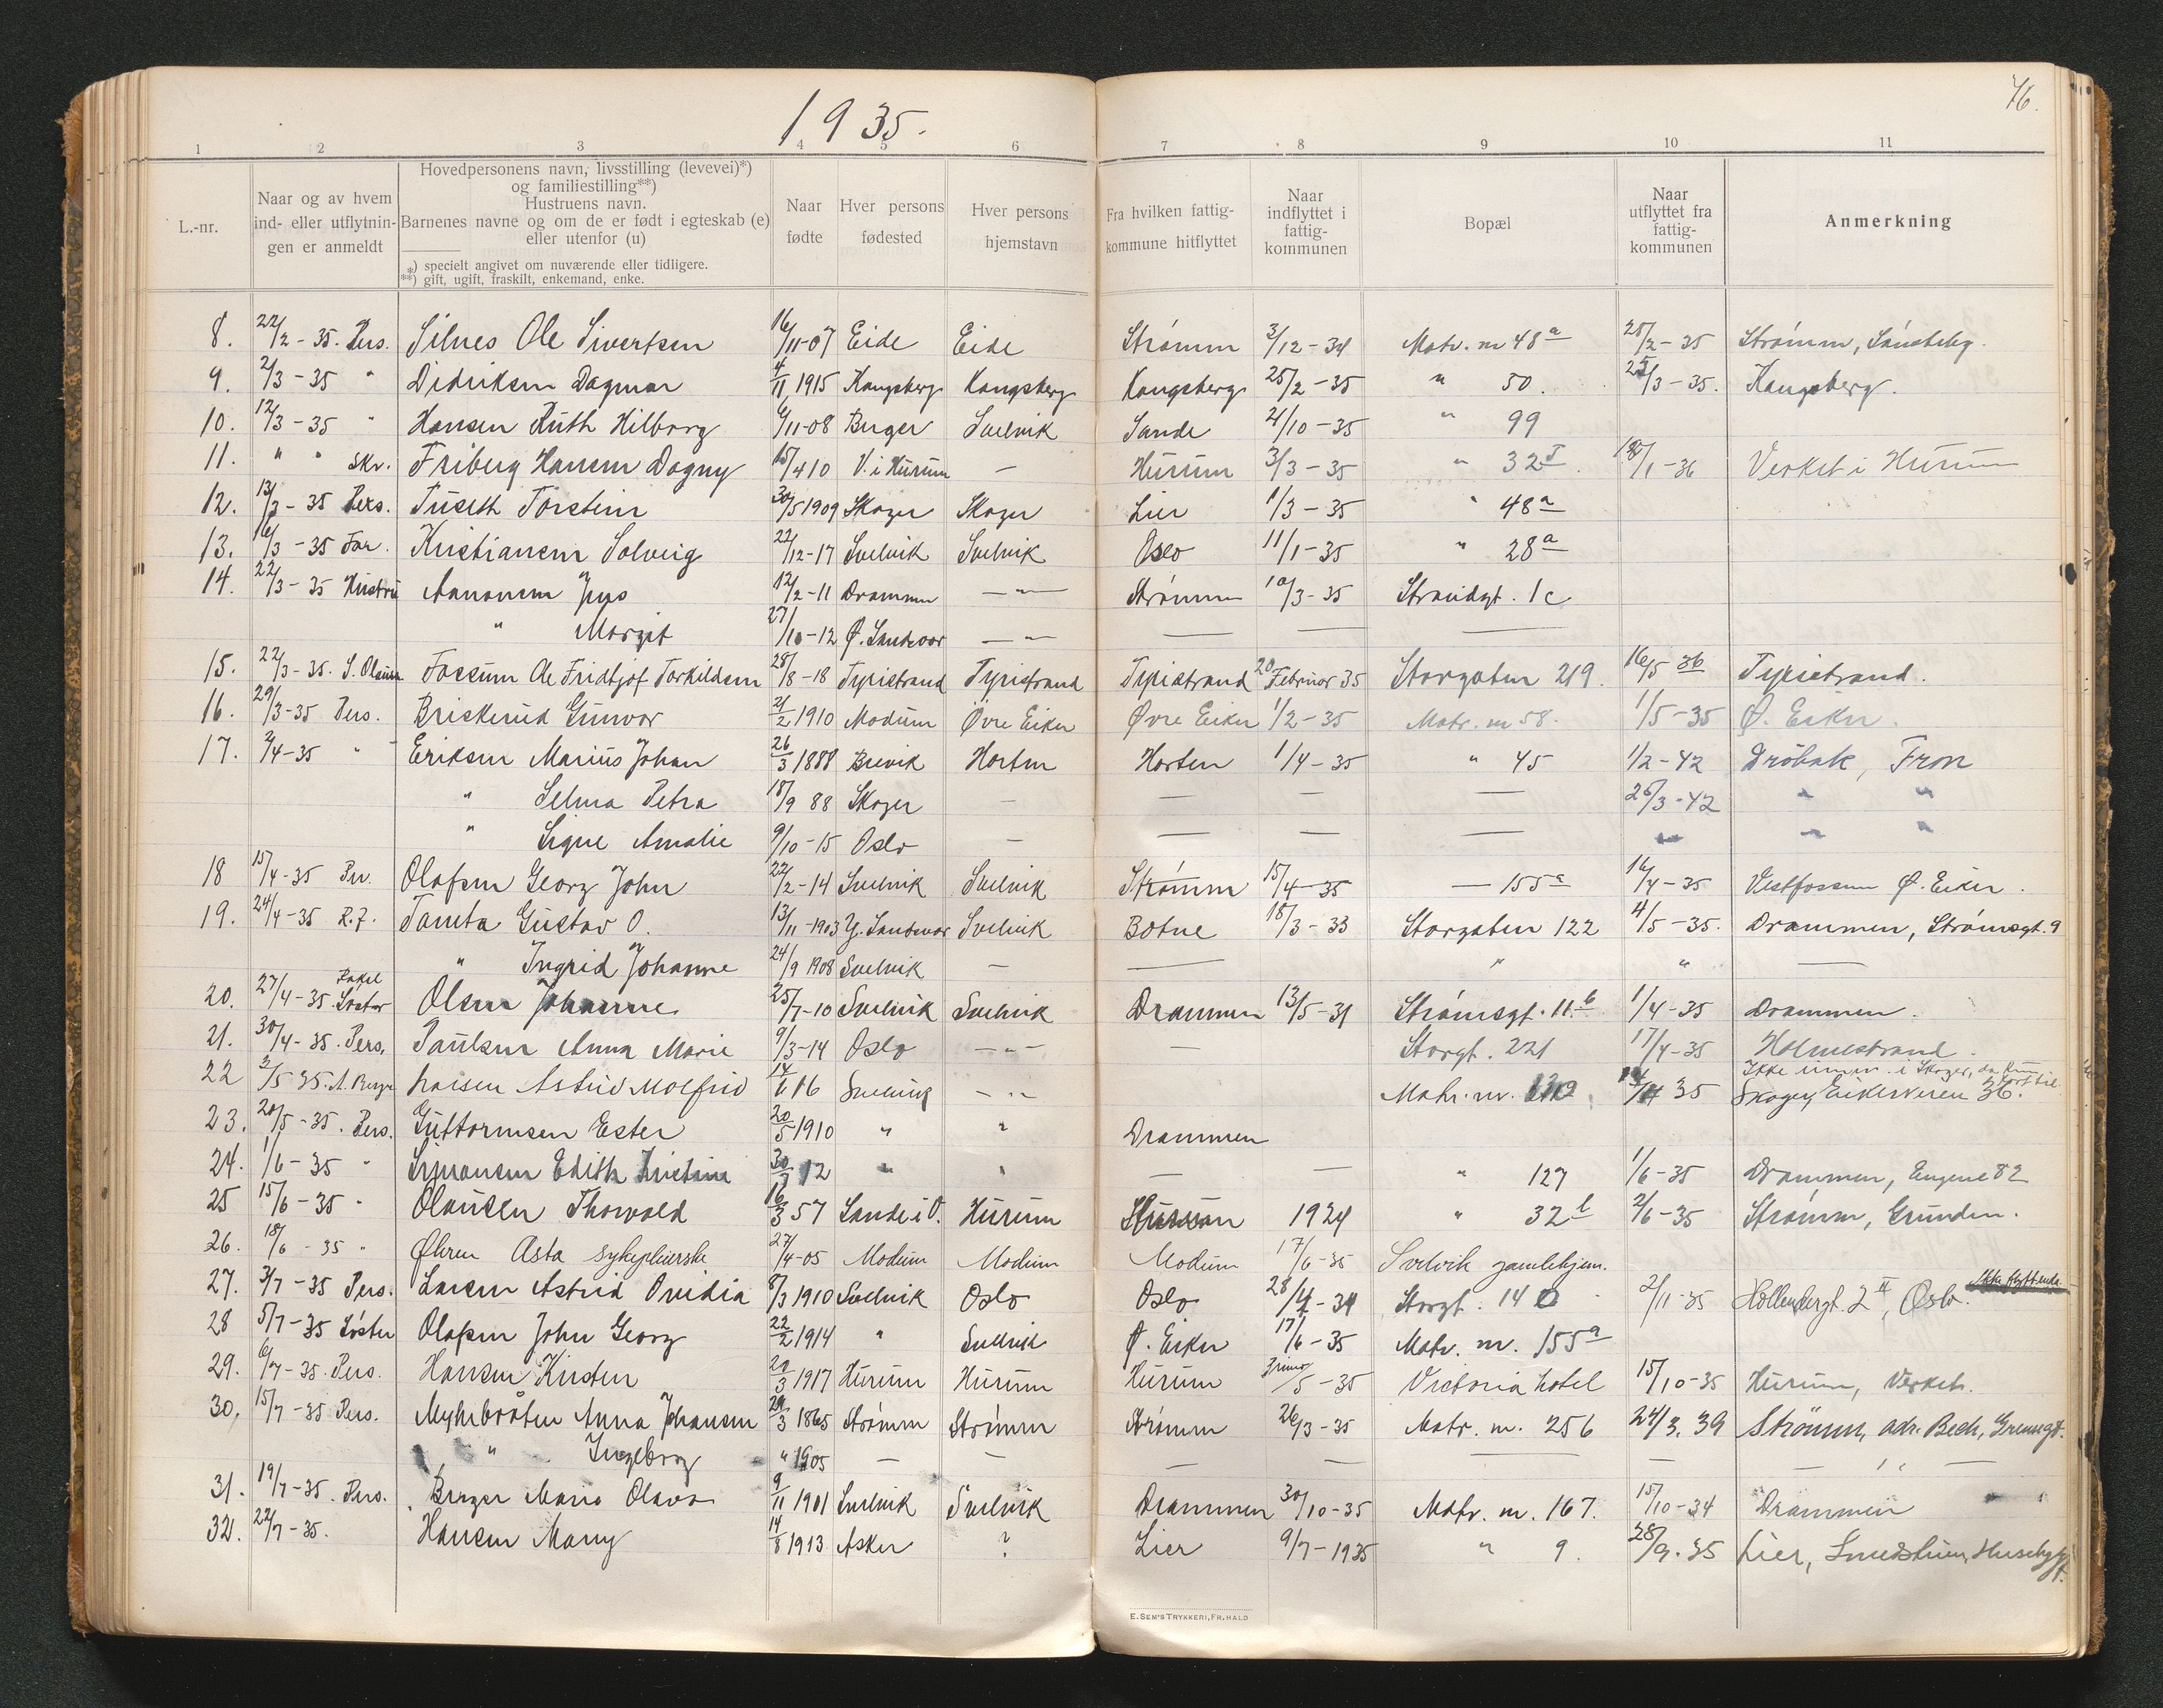 1935.
76.
1 2 3 4 5 6 7 8 9 10 11
L.-nr.
Naar og av hvem ind- eller utflytnin- gen er anmeldt
Hovedpersonens navn, livsstilling (levevei)*)
og familiestilling**)
Hustruens navn.
Barnenes navne og om de er født i egteskab (e)
eller utenfor (u)
*) specielt angivet om nuværende eller tidligere.
**) gift, ugift, fraskilt, enkemand, enke.
Naar fødte
Hver persons fødested
Hver persons hjemstavn
Fra hvilken fattig- kommune hitflyttet
Naar indflyttet i fattig- kommunen
Bopæl
Naar utflyttet fra fattig- kommunen
Anmerkning
8. 22/2-35. Pers. Silnes Ole Sivertsen 16/11-07 Eide Eide Strømm 3/12-34 Matr. nr 48a 28/2-35 Strømm,
9. 2/3-35 " Didriksen Dagmar 4/11 1915 Kongsberg Kongsberg Kongsberg 25/2-35 " 50. 25/3-35. Kongsberg.
10. 12/3-35 " Hansen Ruth Hilborg 6/11-08 Berger Svelvik Sande 4/10-35 " 99
11. " " Skr. Friberg Hansen Dagny 15/4 10 V. i Hurum — Hurum 3/3-35 " 32I. 18/1-36 Verket i Hurum
12. 13/3-35 Pers. Tuseth Torstein 30/5 1909 Skoger Skoger Lier 1/3-35 " 48a
13. 16/3-35 Far. Kristiansen Solveig 22/12-17 Svelvik Svelvik Oslo 11/1-35 " 28a
14. 22/3-35 Hustru Aanonsen Jens 12/2-11 Drammen —"— Strømm 10/3-35 Strandgt. 1c
" Margit 27/10-12 Ø. Sandsvær —"— — — —
15. 22/3-35. S. Olsen Fossum Ole Fridtjof Torkildsen 28/8-18 Tyristrand Tyristrand Tyristrand 20 Februar 35 Storgaten 219. 16/5 36 Tyristrand.
16. 29/3-35 Pers. Briskerud Gunvor 21/2 1910 Modum Øvre Eiker Øvre Eiker 1/2-35 Matr. nr 58. 1/5-35 Ø. Eiker.
17. 2/4-35 " Eriksen Marius Johan 26/3 1888 Brevik Horten Horten 1/4-35 " 45 1/2-42 Drøbak, Fron
" Selma Petra 18/9 88 Skoger — — — — 26/3-42 " "
" Signe Amalie 9/10-15 Oslo — — — — " " "
18 15/4-35 Per. Olafsen Georg John 22/2-14 Svelvik Svelvik Strømm 15/4-35 — 155a 16/4-35 Vestfossen Ø. Eiker.
19. 24/4-35 R.F. Tomta Gustav O. 13/11-1903 Y. Sandsvær Svelvik Botne 18/3-33 Storgaten 122 4/5-35. Drammen, Strømsgt. 9
" Ingrid Johanne 24/9 1908 Svelvik — — " " —
20. 27/4-35 Rakel Søster Olsen Johanne 25/7-10 Svelvik Svelvik Drammen 13/5-31 Strømsgt. 11b 1/4-35 Drammen.
21. 30/4-35. Pers. Paulsen Anna Marie 9/3-14 Oslo —"— — Storgt. 221 17/4-35 Holmestrand.
22 2/5 35. A. Berger Larsen Astrid Molfrid 14/6 16 Svelvik —"— Matr. nr. 35 Ikke i Skoger, da Skoger, Eikerveien 36.
23. 20/5-35. Pers. Guttormsen Ester 20/5 1910 " " Drammen
24. 1/6-35 " Simonsen Edith Kristine 30/3 12 " " — — " 127 1/6-35 Drammen, Engene 82
25 15/6-35 " Olausen Thorvald 16/3 57 Sande i V. Hurum 1924 " 32b 2/6-35 Strømm, Grunden.
26. 18/6-35 " Øhren Asta sykepleierske 27/4-05 Modum Modum Modum 17/6-35 Svelvik gamlehjem.
27. 3/7-35 Pers. Larsen Astrid Ovidia 8/3 1910 Svelvik Oslo Oslo 28/4-34 Storgt. 14 2/11-35 Hollendergt. 2II, Oslo. Ikke flyttende
28 5/7-35 Søster Olafsen John Georg 22/2 1914 " Svelvik Ø. Eiker 17/6-35 Matr. nr. 155a
29. 6/7-35. Pers. Hansen Kirsten 20/3 1917 Hurum Hurum Hurum /5-35 Victoria hotel 15/10-35 Hurum, Verket.
30. 15/7-35 Pers. Myhrbråten Anna Johansen 29/3 1865 Strømm Strømm Strømm 26/3-35 Matr. nr. 256 24/3.39 Strømm, adr. Bech, Grensegt.
" Ingeborg " 1905 — — — — — — " —
31. 19/7-35. Pers. Berger Marie Olava 9/11 1901 Svelvik Svelvik Drammen 30/10-35 Matr. nr. 167. 15/10-34 Drammen
32. 22/7-35. Hansen Mary 14/8 1913 Asker ? Lier 9/7-1935 " 9. 28/9-35 Lier,
E. SEM'S TRYKKERI, FR.HALD